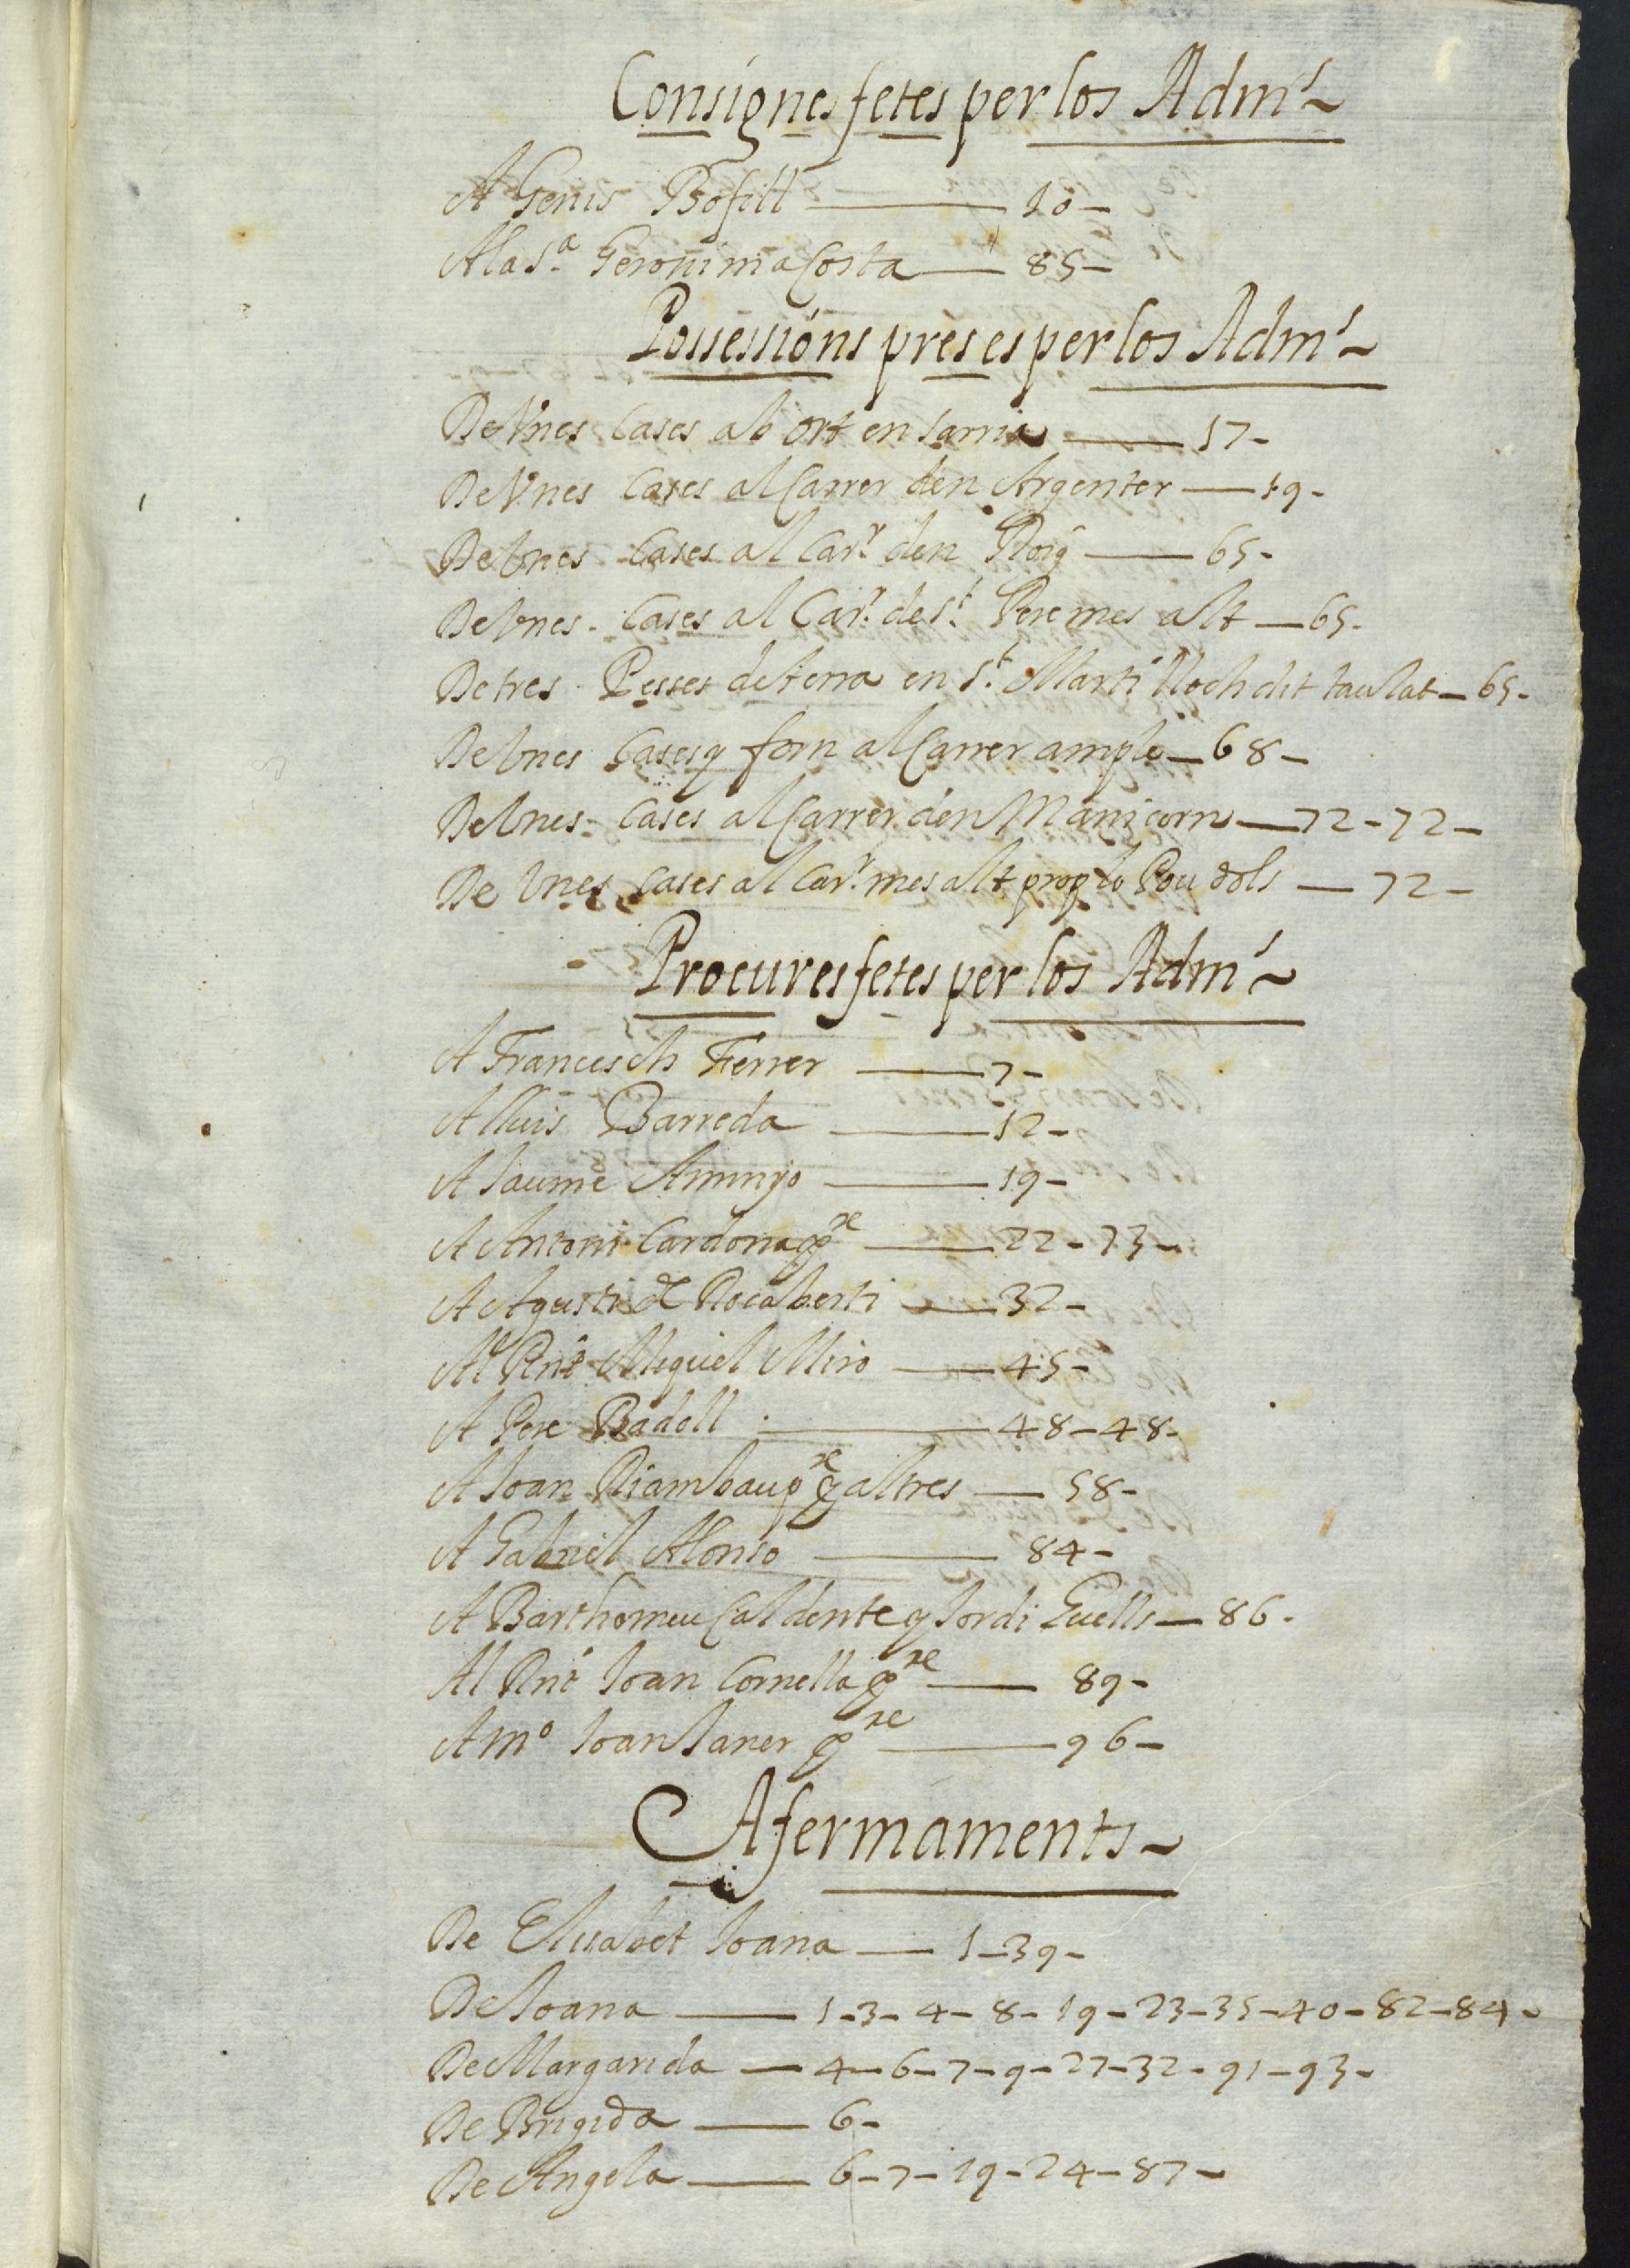 Consignes fetes per los Adm.s
A Genis Bofill — 10 —
A la S.a Geronima Costa — 85 —
Possessións preses per los Adm.s
De Vnes Cases ab ort en Sarria — 17 -
De Vnes Cases al Carrer den Argenter — 19 -
De Vnes Cases al Car.r den Roig — 65 -
De Vnes Cases al Car.r de S.t Pere mes alt — 65 -
De tres Pesses de terra en S.t Marti lloch dit taulat — 65 -
De Vnes Cases y forn al Carrer ample — 68 —
De Vnes Cases al Carrer den Manicorn — 72 - 72 —
De Vnes Cases al Car.r mes alt prop lo Pou dols — 72 —
Procures fetes per los Adm.s
A Francesch Ferrer — 7 -
A lluis Barreda — 12 -
A Jaume — 19 -
A Antoni Cardona — 22 - 73 -
A Agusti de Rocaberti — 32 -
Al Rnt Miquel Miro — 45 -
A Pere Badell — 48 - 48 -
A Joan Riambau y altres — 58 -
A Gabriel Alonso — 84 -
A Barthomeu Caldente y Jordi Guells — 86 -
Al Rnt Joan Cornella — 89 -
A M.o Joan Janer — 96 —
Afermaments
De Elisabet Joana — 1 - 39 -
De Joana — 1 - 3 - 4 - 8 - 19 - 23 - 35 - 40 - 82 - 84 -
De Margarida — 4 - 6 - 7 - 9 - 27 - 32 - 91 - 93 -
De Brigida — 6 -
De Angela — 6 - 7 - 19 - 24 - 87 -